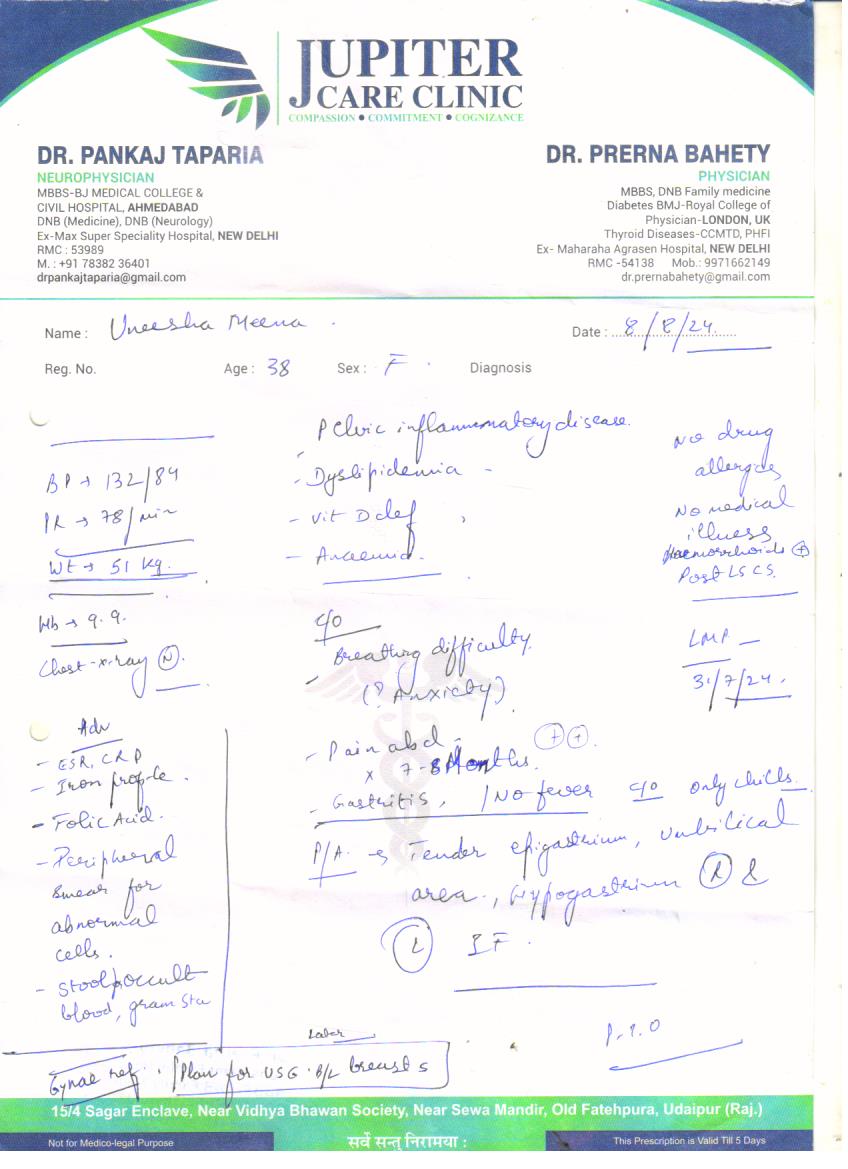 JUPITER
CARE CLINIC
COMPASSION • COMMITMENT • COGNIZANCE
DR. PANKAJ TAPARIA
NEUROPHYSICIAN
MBBS-BJ MEDICAL COLLEGE &
CIVIL HOSPITAL, AHMEDABAD
DNB (Medicine), DNB (Neurology)
Ex-Max Super Speciality Hospital, NEW DELHI
RMC : 53989
M. : +91 78382 36401
drpankajtaparia@gmail.com
DR. PRERNA BAHETY
PHYSICIAN
MBBS, DNB Family medicine
Diabetes BMJ-Royal College of
Physician-LONDON, UK
Thyroid Diseases-CCMTD, PHFI
Ex- Maharaha Agrasen Hospital, NEW DELHI
RMC -54138 Mob.: 9971662149
dr.prernabahety@gmail.com
Name : Uneesha Meena . Date : 8/8/24
Reg. No. Age : 38 Sex : F . Diagnosis
BP → 132/84
PR → 78/min
Wt → 51 kg.
Hb → 9.9.
Chest-x-ray (N).
Pelvic inflammatory disease.
- Dyslipidemia -
- Vit D def
- Anaemia.
No drug
allergies
No medical
illness
Haemorrhoids (+)
Post LSCS.
c/o
- Breathing difficulty.
(? Anxiety)
LMP -
31/7/24.
- Pain abd - (+) (+).
x 7-8 Months.
- Gastritis, / No fever c/o only chills.
P/A. → Tender epigastrium, umbilical
area, Hypogastrium (R) &
(L) IF.
P.T.O
Adv
- ESR, CRP
- Iron profile.
- Folic Acid.
- Peripheral
smear for
abnormal
cells.
- Stool occult
blood, gram
Later
Gynae ref. Plan for USG B/L breasts
15/4 Sagar Enclave, Near Vidhya Bhawan Society, Near Sewa Mandir, Old Fatehpura, Udaipur (Raj.)
Not for Medico-legal Purpose
सर्वे सन्तु निरामया :
This Prescription is Valid Till 5 Days